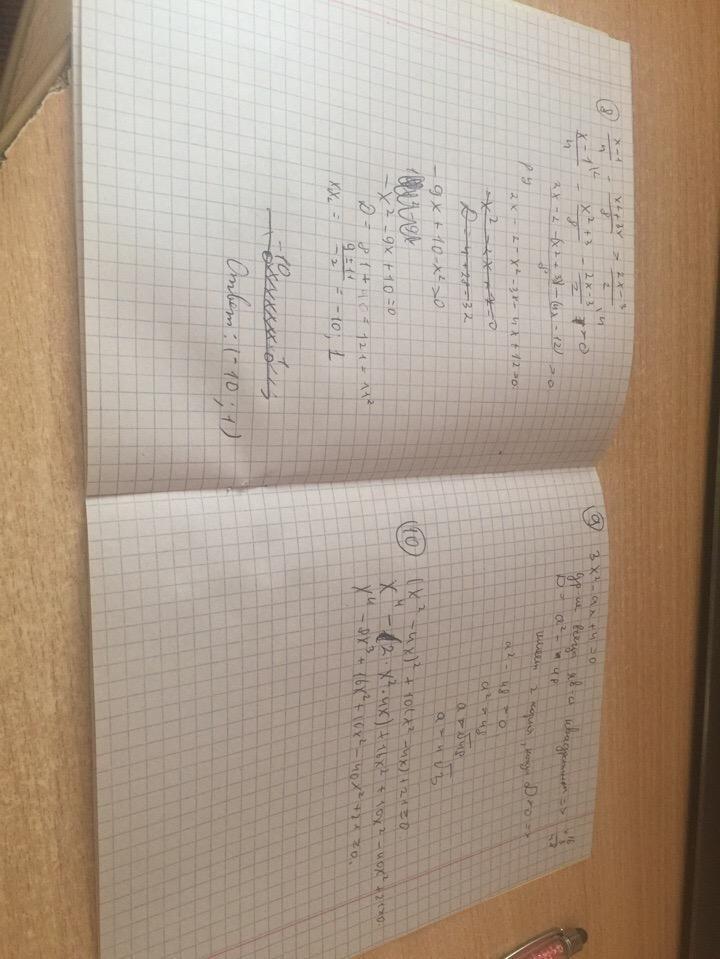 ⑧ x-1/4 - x²+3x/8 = 2x-3/2
x-1/4 \2 - x²+3/8 - 2x-3/2 \4 = 0
2x-2-(x2+3)-(4x-12)/8 = 0
2x-2-x²-3x-4x+12=0
-9x+10-x²=0
-x²-9x+10=0
D=81+40=121=11²
x₂ = 9±11/-2 = -10; 1
-10
Ответ: (-10; 1)
⑨ 3x²-ax+4=0
D = a² - 48
имеет 2 корня, когда D=0 =>
a²-48=0
a²=48
a=√48
a=4√3
⑩ (x²-4x)²+10(x²-4x)+21=0
x⁴-(2·x²·4x)+16x²+10x²-40x²+21=0
x⁴-8x³+16x²+10x²-40x²+21=0.